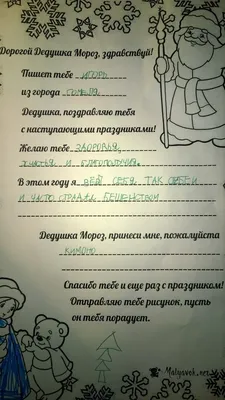 Дорогой Дедушка Мороз, здравствуй!
Пишет тебе ИГОРЬ
из города ГОМЕЛЯ
Дедушка, поздравляю тебя
с наступающими праздниками!
Желаю тебе ЗДОРОВЬЯ,
СЧАСТЬЯ И БЛАГОПОЛУЧИЯ.
В этом году я ВЕЛ СЕБЯ ТАК СЕБЕ
И ЧАСТО СТРАДАЛ БЕШЕНСТВОМ
Дедушка Мороз, принеси мне, пожалуйста
КИМОНО
Спасибо тебе и еще раз с праздником!
Отправляю тебе рисунок, пусть
он тебя порадует.
Malyavok.net